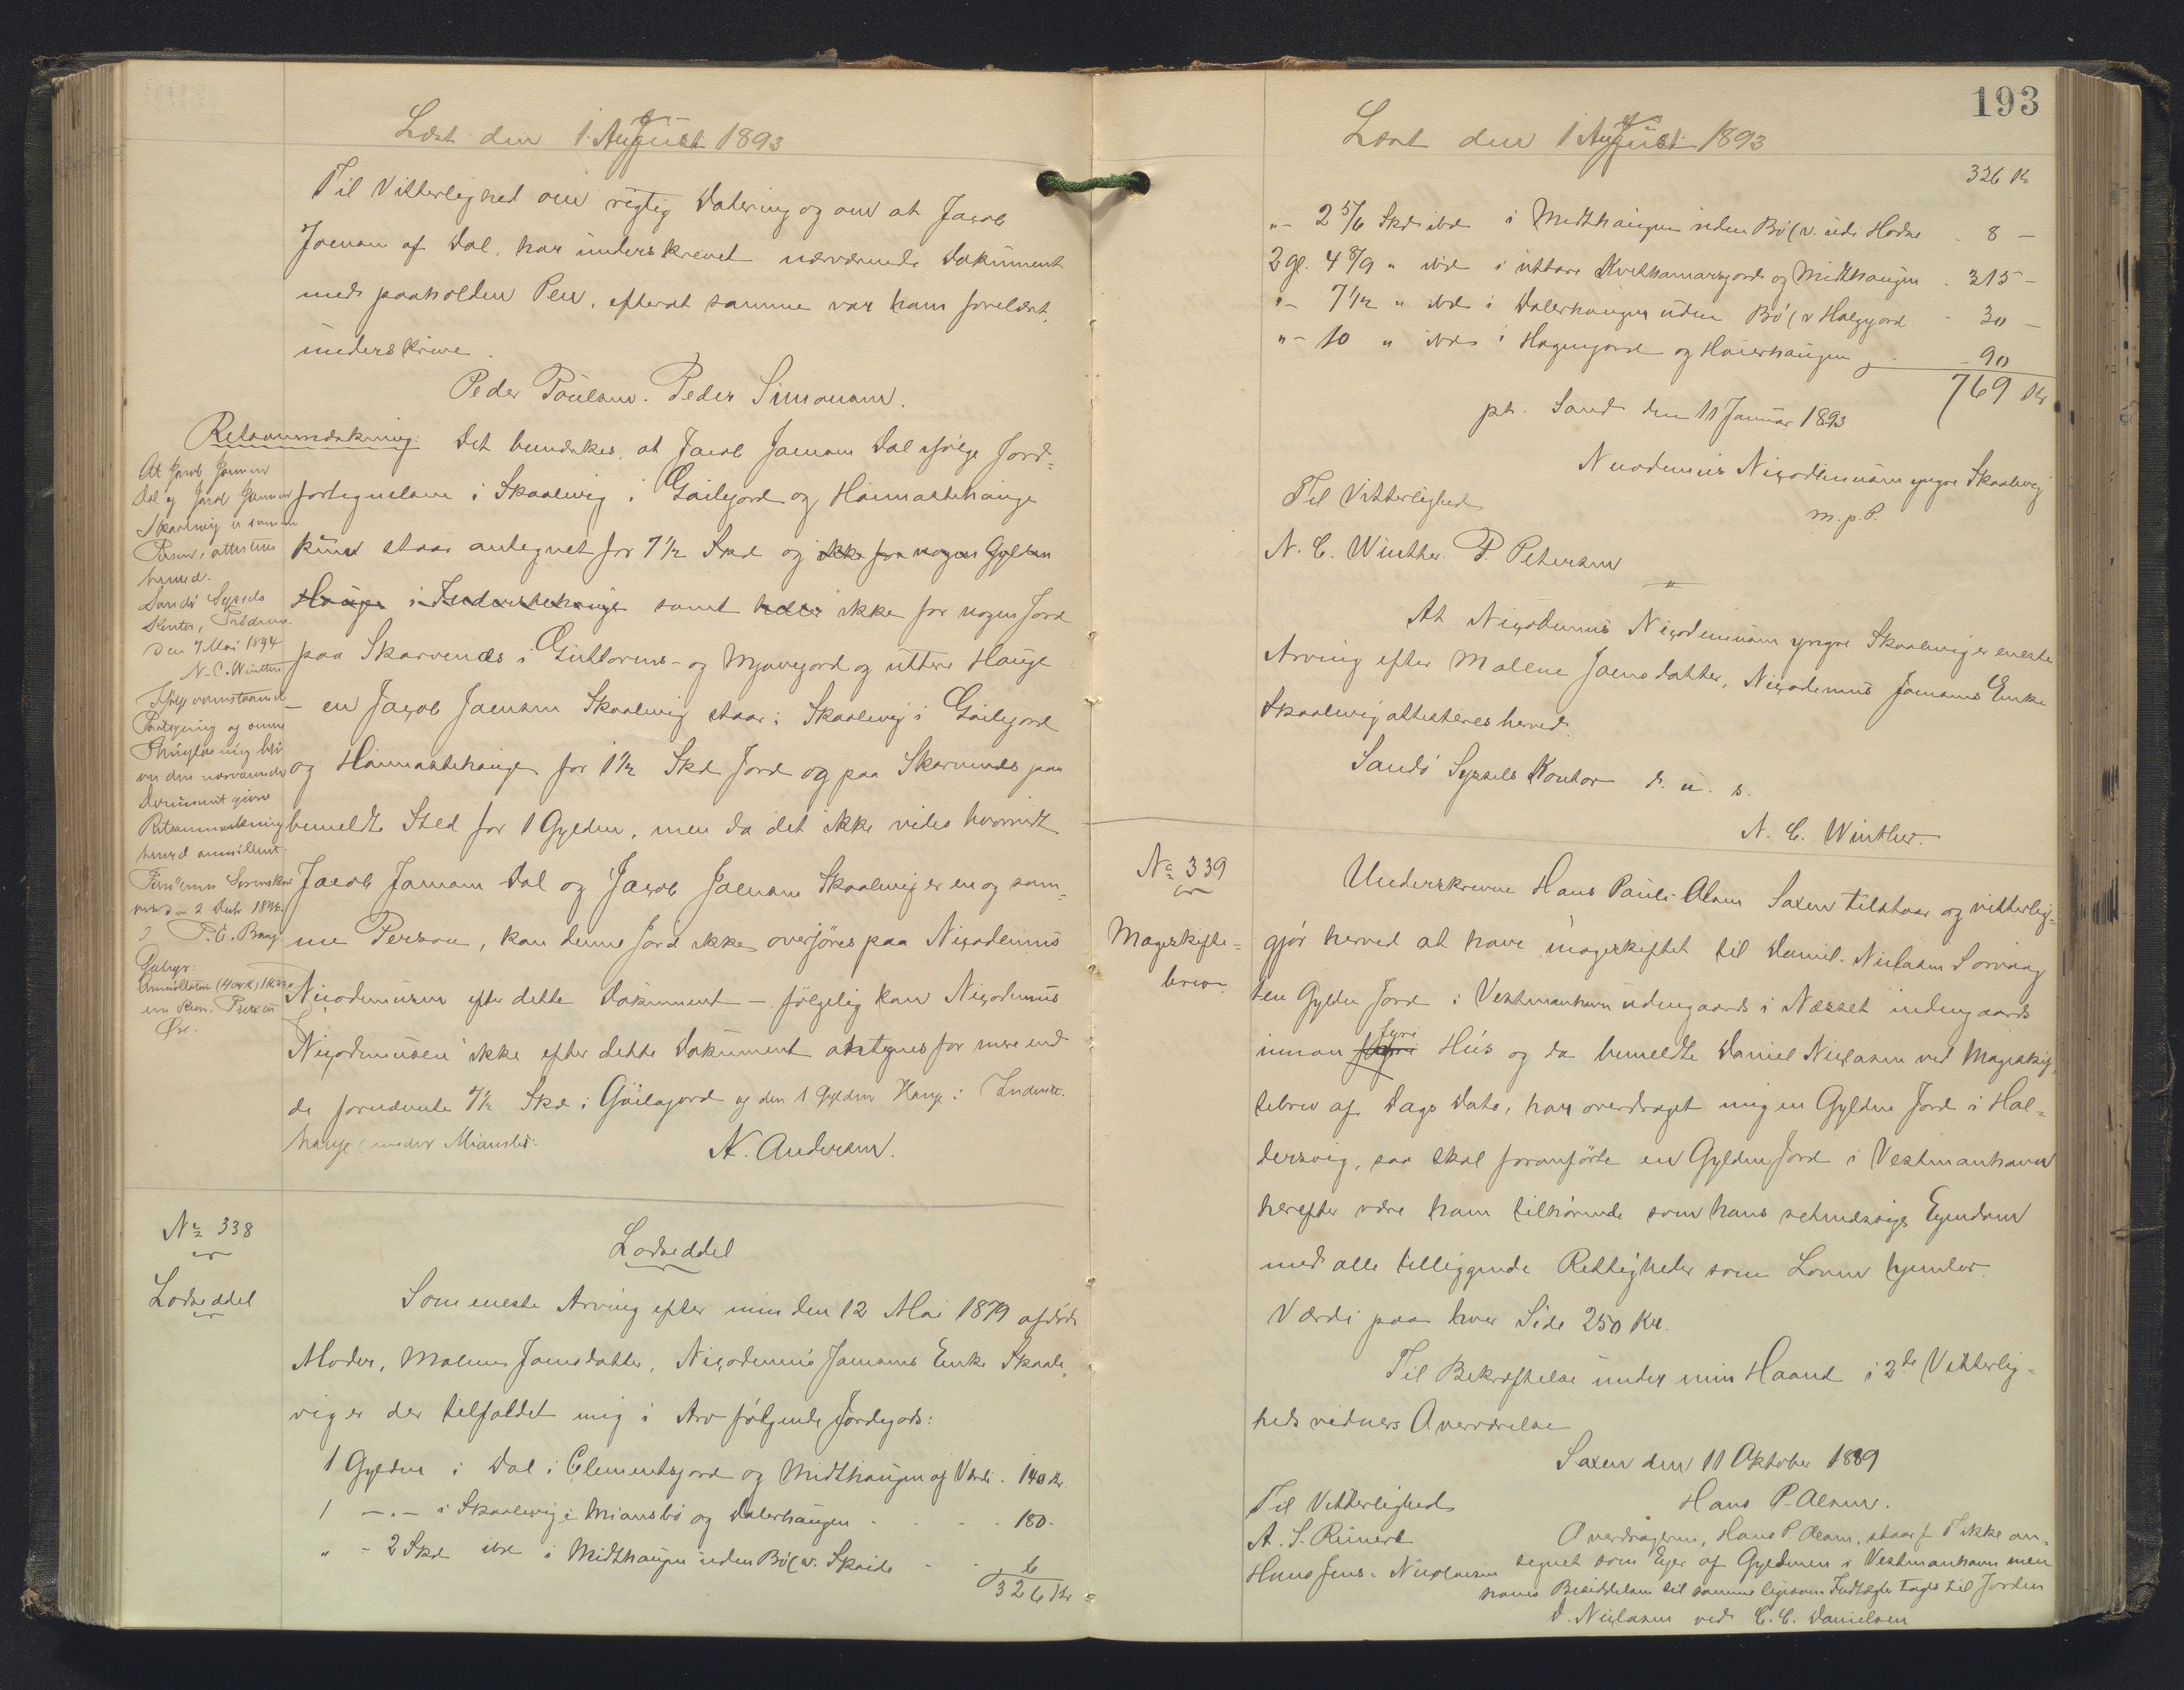 Læst den 1. August 1893
Til Vitterlighed om rigtig Datering og om at Jacob
Joensen af Dal, har underskrevet nærværende Dokument
med paaholden Pen, efterat samme var ham forelæst,
underskrive.
Peder Poulsen. Peder Simonsen.
Retsanmærkning: Det bemærkes, at Jacob Joensen Dal ifølge Jord-
fortegnelsen i Skaalevig i Gøilegjord og Heimastehauge
kun staar antegnet for 7 1/2 Skd og ikke for nogen Gylden
Hauge i Inderstehauge samt heller ikke for nogen Jord
paa Skarvenæs i Guttorms- og Mjavegjord og uttere Hauge
- en Jacob Joensen Skaalevig staar i Skaalevig i Gøilegjord
og Heimastehauge for 1 1/2 Skd Jord og paa Skarvenæs paa
bemeldte Sted for 1 Gylden, men da det ikke vides hvorvidt
Jacob Joensen Dal og Jacob Joensen Skaalevig er en og sam-
me Person, kan denne Jord ikke overføres paa Nicodemus
Nicodemusen efter dette Dokument - følgelig kan Nicodemus
Nicodemusen ikke efter dette Dokument antegnes for mere end
de fornævnte 7 1/2 Skd i Gøilagjord og den 1 Gylden Hauge i Inderste-
hauge under Miansbø.
N. Andersen.
At Jacob Joensen
Dal og Jacob Joensen
Skaalevig er samme
Person, attesteres
herved.
Sandø Syssels
Kontor, Trødum
den 7 Mai 1894
N. C. Winther
Ifølge ovenstaaende
Paategning og senere
Thinglæsning bli-
ver den nærværende
Document givne
Retsanmærkning
herved annulleret.
Færøernes Sorenskri-
veri den 2 Decbr 1896.
P. C. Bang.
Gebyr:
Annullation
Nº 338
Lodseddel
Lodseddel
Som eneste Arving efter min den 12 Mai 1879 afdøde
Moder, Malene Joensdatter, Nicodemus Joensens Enke Skaale-
vig er der tilfaldet mig i Arv følgende Jordegods:
1 Gylden i Dal i Clementsgjord og Midthaugen af Værdi . 140 Kr.
1 -"- i Skaalevig i Miansbø og Dalerhaugen - - - 180 -
" - 2 Skd ibd i Midthaugen uden Bø (v. Skeide - - 6
326 Kr
193
Læst den 1 August 1893
326 Kr
"- 2 5/6 Skd ibd i Midthaugen uden Bø (v. udi Hodne - 8 -
2 gl. 4 8/9 " ibd i uttare Kvithamarsgjord og Midthaugen - 315 -
"- 7 1/2 " ibd i Dalerhaugen uden Bø (v Halgjord - 30 -
"- 10 " ibd i Hagengjord og Høierhaugen - 90
769 Kr
pt. Sand den 11 Januar 1893
Nicodemus Nicodemusen yngre Skaalevig
m. p. P.
Til Vitterlighed
N. C. Winther. P. Petersen
"
At Nicodemus Nicodemusen yngre Skaalevig er eneste
Arving efter Malene Joensdatter, Nicodemus Joensens Enke
Skaalevig attesteres herved.
Sandø Syssels Kontor d. u. s.
N. C. Winther.
Nº 339
Mageskifte-
brev
Underskrevne Hans Pauli Olsen Saxen tilstaar og vitterlig-
gjør herved at have mageskiftet til Daniel Niclasen Sorvaag
een Gylden Jord i Vestmanhavn udengaards i Næsset indengaards
innan fyri Hus og da bemeldte Daniel Niclasen ved Mageskif-
tebrev af Dags Dato, har overdraget mig en Gylden Jord i Hal-
dersvig, saa skal foranførte en Gylden Jord i Vestmanhavn
herefter være ham tilhørende som hans retmæssige Eyendom
med alle tilliggende Rettigheder som Loven hjemler.
Værdi paa hver Side 250 Kr.
Til Bekræftelse under min Haand i 2de Vitterlig-
hedsvidners Overværelse
Saxen den 11 Oktober 1889
Hans P. Olsen.
Til Vitterlighed
A. S. Reinert
Hans Jens. Nicolaisen
Overdrageren, Hans P. Olsen, staar f. T. ikke an-
tegnet som Ejer af Gyldenen i Vestmanhavn men
hans Besiddelse til samme ligesom Indtægter tages til Jorden
D. Niclasen ved C. C. Danielsen